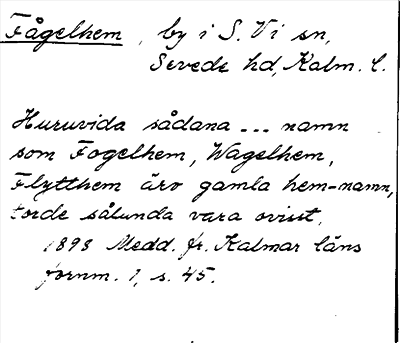 Fågelhem, by i S. Vi sn,
Sevede hd, Kalm. l.
Huruvida sådana ... namn
som Fogelhem, Wagelhem,
Flytthem äro gamla hem-namn,
torde sålunda vara ovisst.
1898 Medd. fr. Kalmar läns
fornm. 1, s. 45.